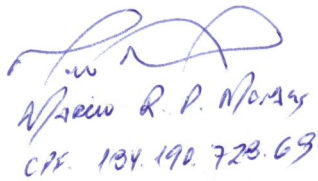 Marcio R. P. Moraes
CPF. 134.190.723.69